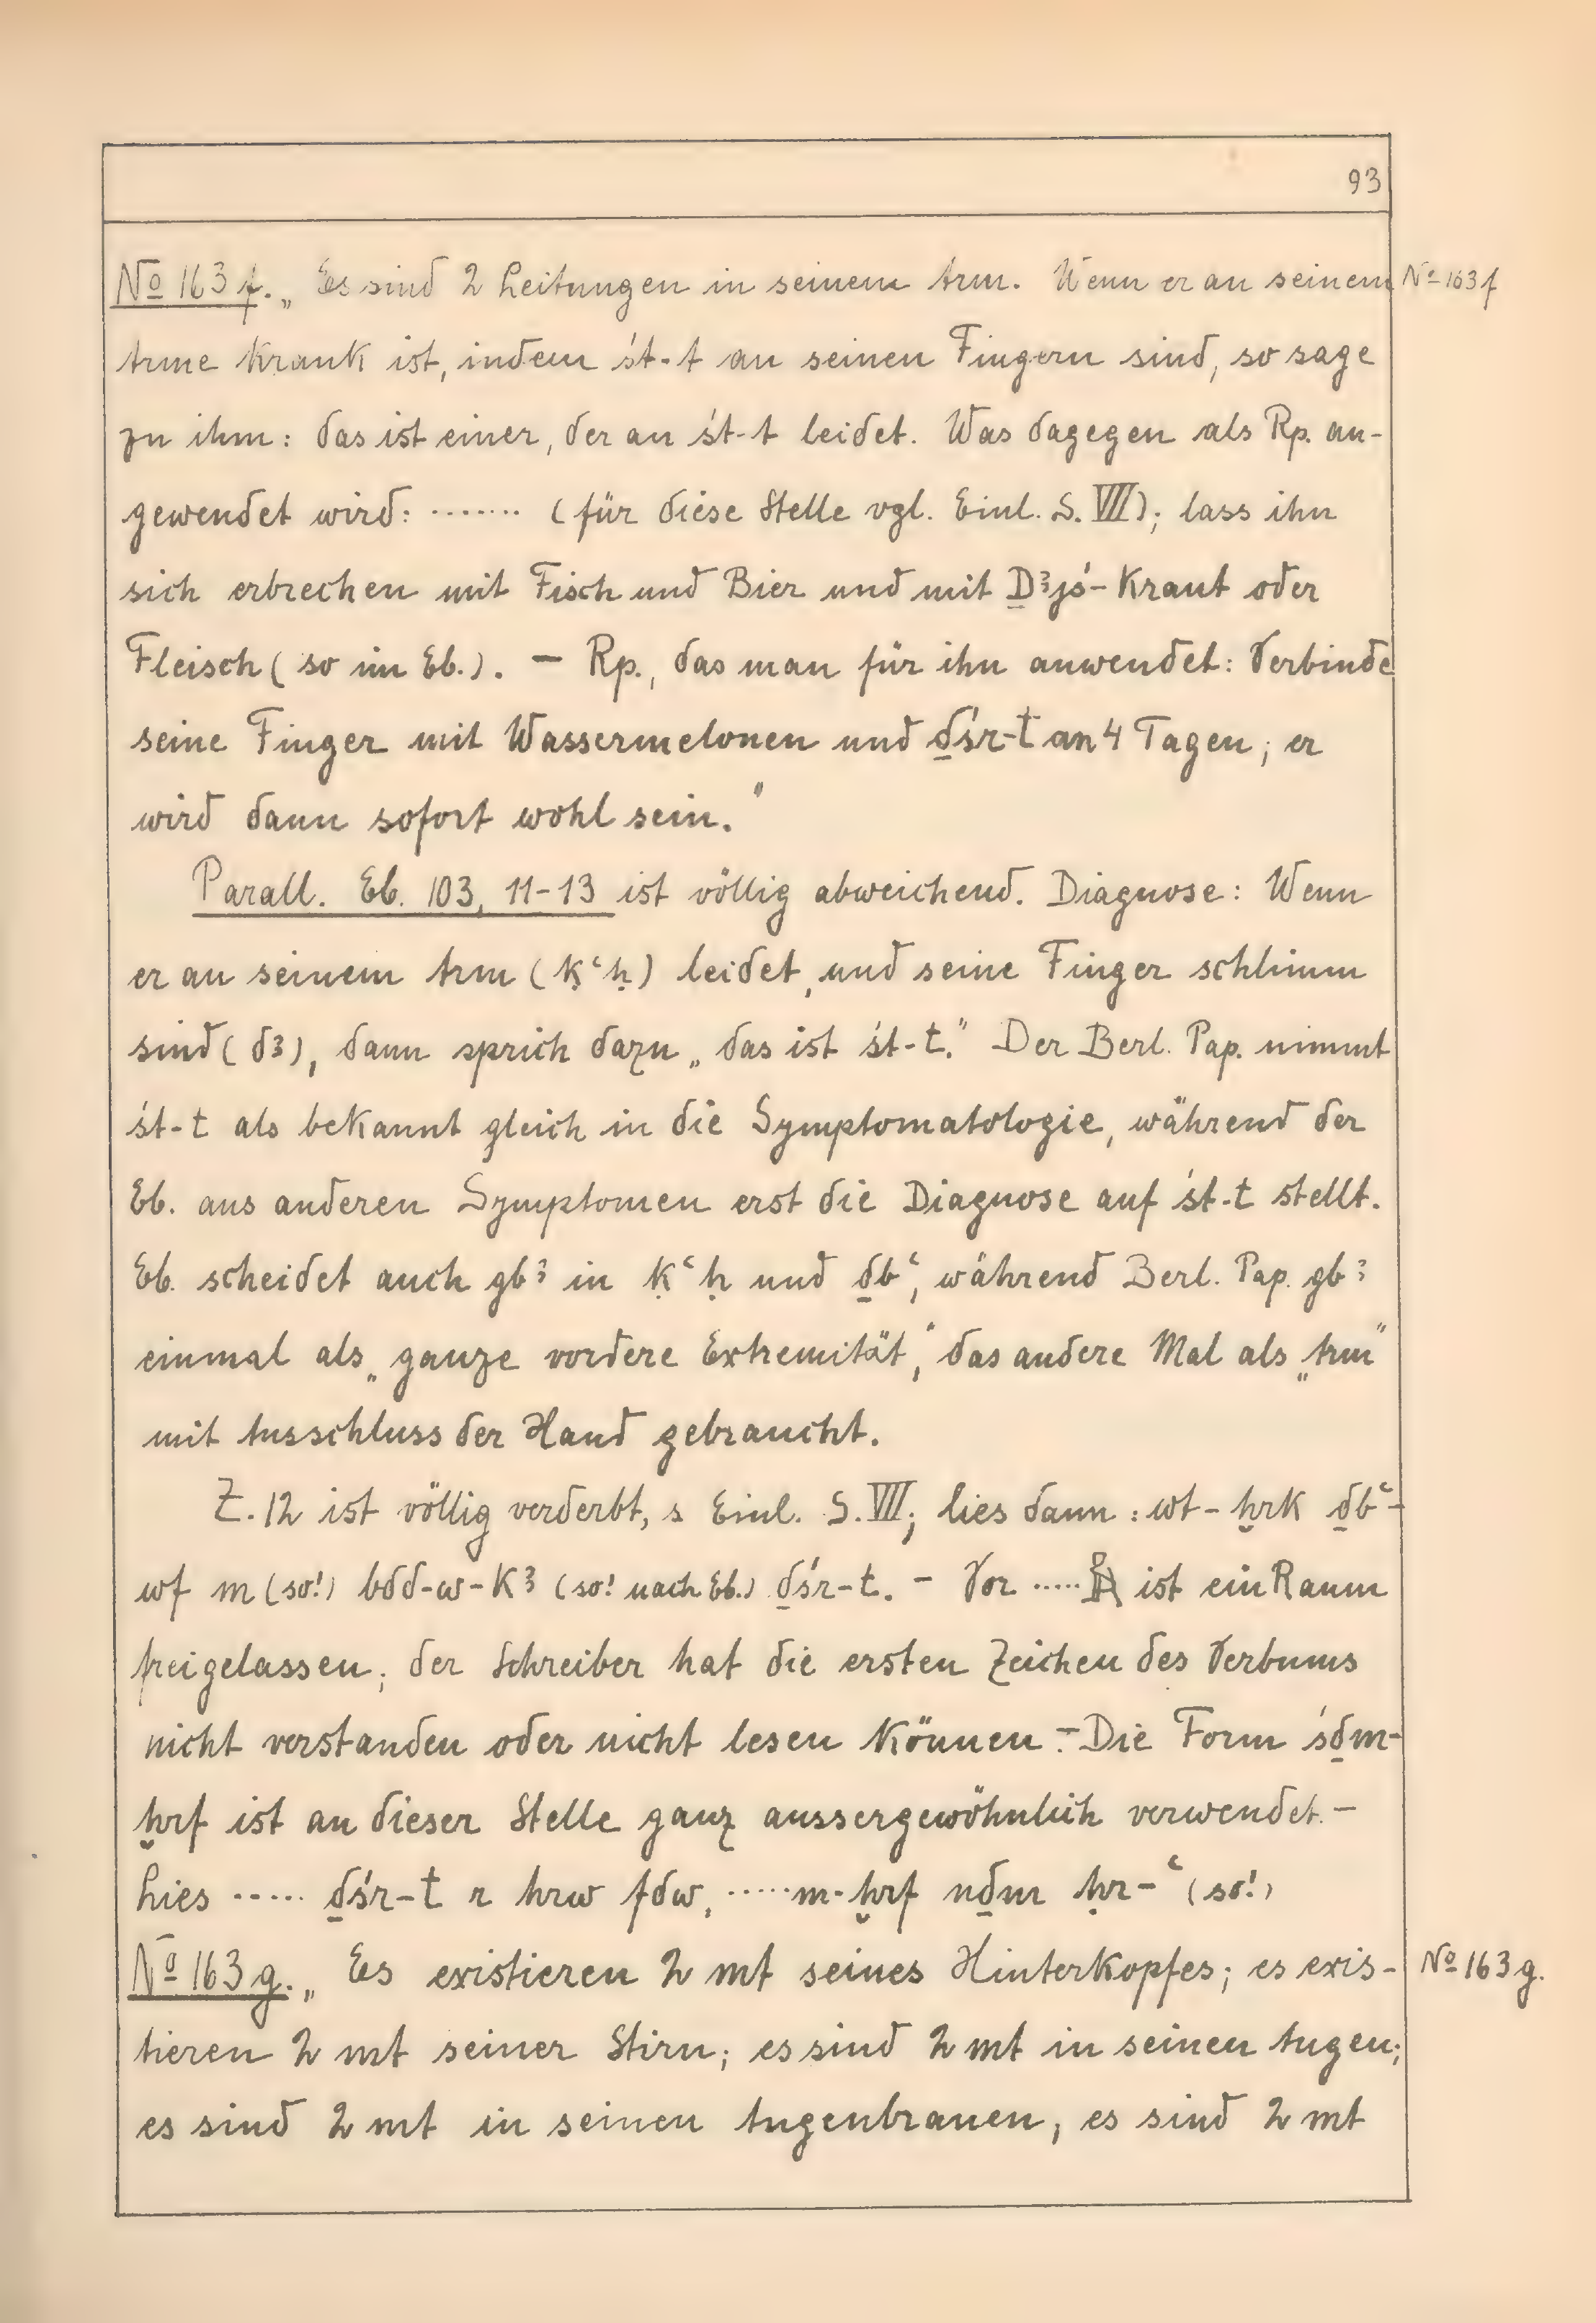 93
No 163 f. „Es sind 2 Leitungen in seinem Arm. Wenn er an seinem
No 163 f
Arme krank ist, indem śt-t an seinen Fingern sind, so sage
zu ihm: das ist einer, der an śt-t leidet. Was dagegen als Rp. an-
gewendet wird: ....... (für diese Stelle vgl. Einl. S. VIII); lass ihn
sich erbrechen mit Fisch und Bier und mit Ḏꜣjś-Kraut oder
Fleisch (so im Eb.). — Rp., das man für ihn anwendet: Verbinde
seine Finger mit Wassermelonen und ḏśr-t an 4 Tagen; er
wird dann sofort wohl sein."
Parall. Eb. 103, 11-13 ist völlig abweichend. Diagnose: Wenn
er an seinem Arm (ḳꜥḥ) leidet, und seine Finger schlimm
sind (dꜣ), dann sprich dazu „das ist śt-t." Der Berl. Pap. nimmt
śt-t als bekannt gleich in die Symptomatologie, während der
Eb. aus anderen Symptomen erst die Diagnose auf śt-t stellt.
Eb. scheidet auch gbꜣ in ḳꜥḥ und ḏbꜥ, während Berl. Pap. gbꜣ
einmal als „ganze vordere Extremität," das andere Mal als „Arm"
mit Ausschluss der Hand gebraucht.
Z. 12 ist völlig verderbt, s Einl. S. VIII; lies dann: wt-ḫrk ḏbꜥ-
wf m (so!) bdd-w-kꜣ (so! nach Eb.) ḏśr-t. — Vor ..... ist ein Raum
freigelassen; der Schreiber hat die ersten Zeichen des Verbums
nicht verstanden oder nicht lesen können. — Die Form śḏm-
ḫrf ist an dieser Stelle ganz aussergewöhnlich verwendet. —
Lies ..... ḏśr-t r hrw fdw, ..... m-ḫrf nḏm ḥr-ꜥ (so!)
No 163 g. „Es existieren 2 mt seines Hinterkopfes; es exis-
No 163 g.
tieren 2 mt seiner Stirn; es sind 2 mt in seinen Augen;
es sind 2 mt in seinen Augenbrauen, es sind 2 mt